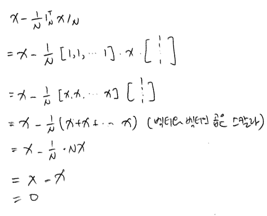 x - 1/N 1ᵀ_N x 1_N
= x - 1/N [1, 1, ... 1] · x · [1 ⋮ 1]
= x - 1/N [x, x, ... x] [1 ⋮ 1]
= x - 1/N (x+x+ ... x) (벡터와 벡터의 곱은 스칼라)
= x - 1/N · Nx
= x - x
= 0